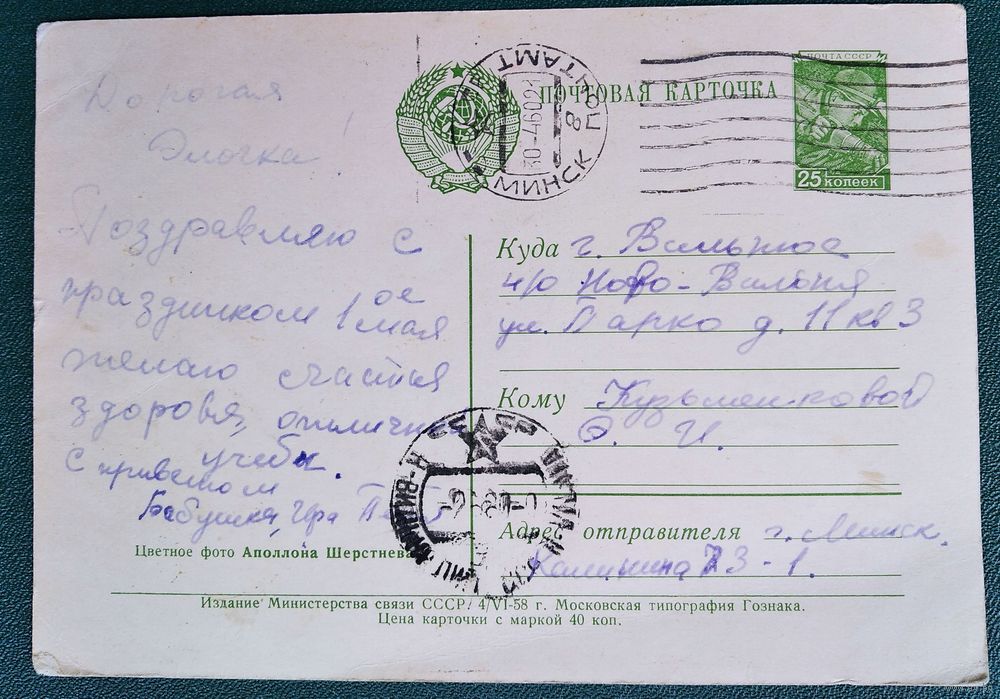 ПОЧТОВАЯ КАРТОЧКА
ПОЧТА СССР
25 копеек
МИНСК ПОЧТАМТ
30-460
Дорогая
Элочка!
Поздравляю с
праздником 1ое мая
желаю счастья
здоровья, отличн
учебы.
с приветом
Бабушка, Ира
Куда г. Вильнюс
п/о Ново-Вильня
ул. Парко д. 11 кв 3
Кому Кузьменковой
Э. И.
Адрес отправителя г. Минск,
Калинина 73-1.
Цветное фото Аполлона Шерстнева
СССР
Издание Министерства связи СССР. 4/VI-58 г. Московская типография Гознака.
Цена карточки с маркой 40 коп.